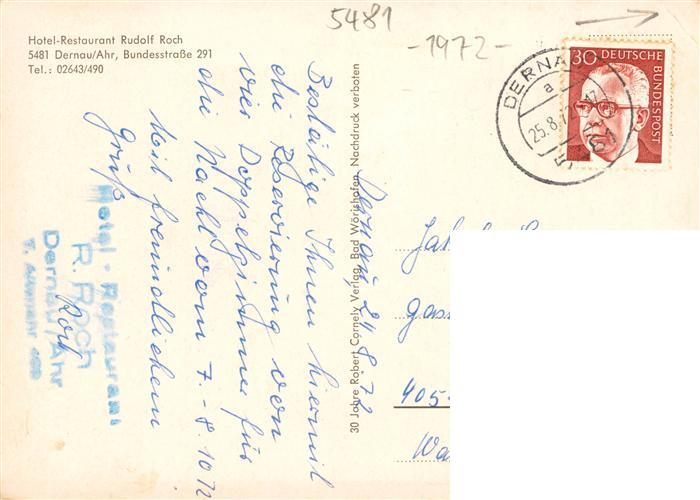 Hotel-Restaurant Rudolf Roch
5481 Dernau/Ahr, Bundesstraße 291
Tel.: 02643/490
5481
-1972-
30 DEUTSCHE
BUNDESPOST
DERNAU
a
25.8.72
5481
Dernau, 24.8.72
Bestätige Ihnen hiermit
die Reservierung von
vier Doppelzimmer für
die Nacht vom 7.-8.10.72
Mit freundlichem
Gruß
Roch
Hotel-Restaurant
R. Roch
Dernau/Ahr
30 Jahre Robert Cornely Verlag, Bad Wörishofen Nachdruck verboten
405